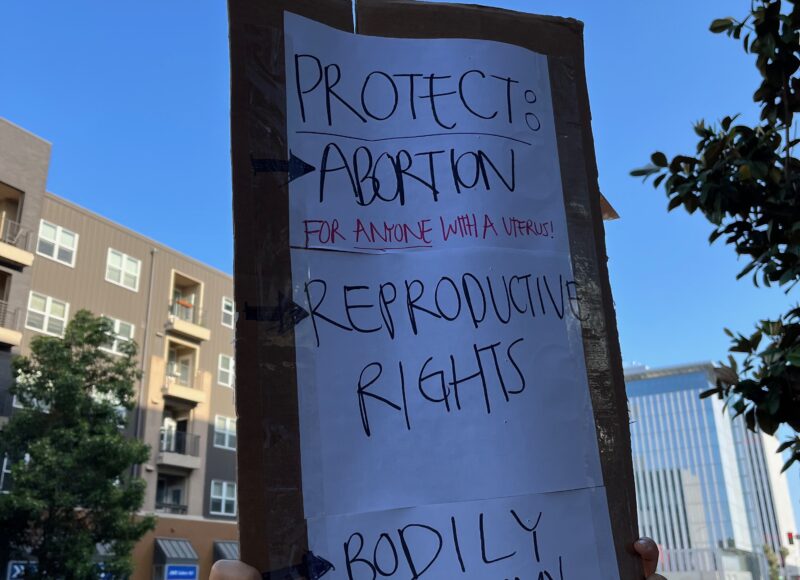 PROTECT:
ABORTION
FOR ANYONE WITH A UTERUS!
REPRODUCTIVE
RIGHTS
BODILY